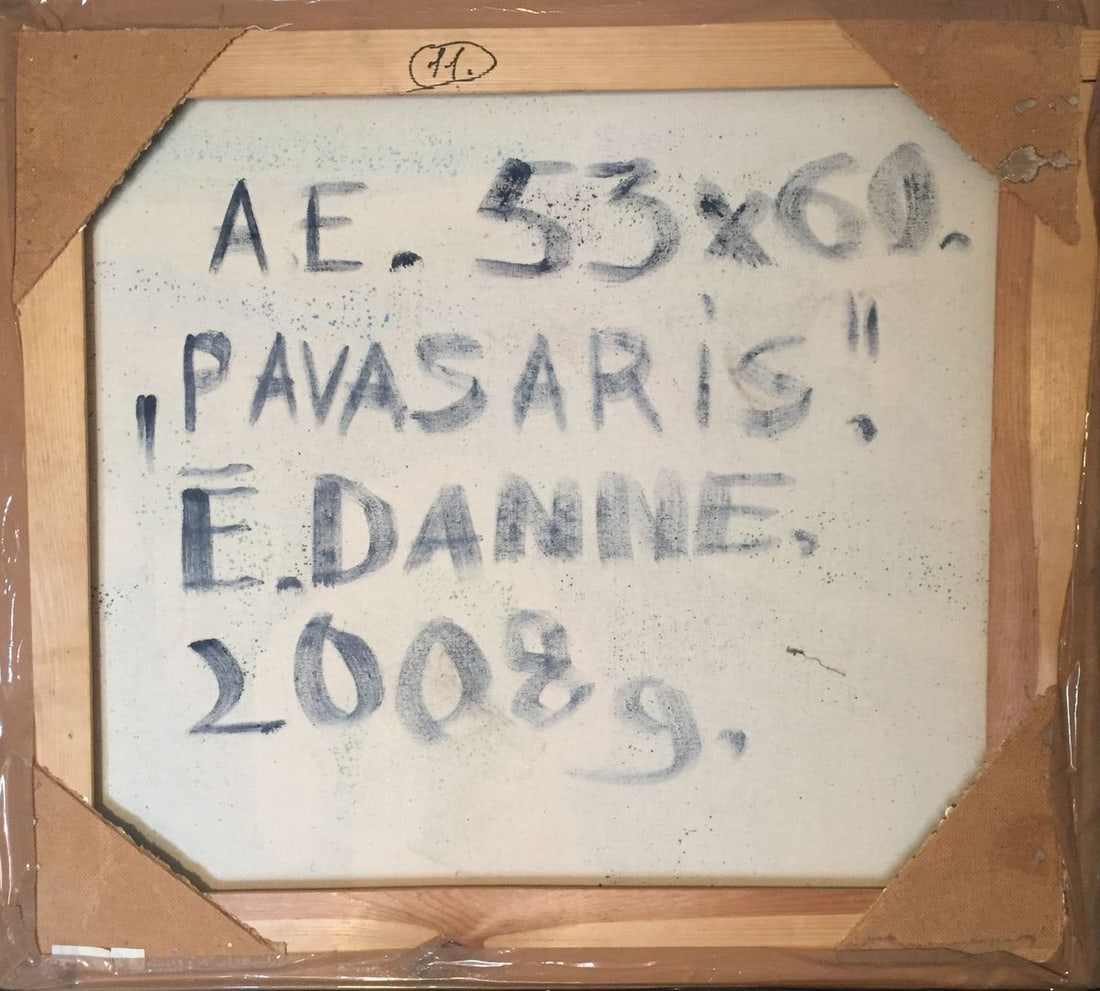 11.
AE. 53x60.
„PAVASARIS."
Ē.DANNE.
2008g.